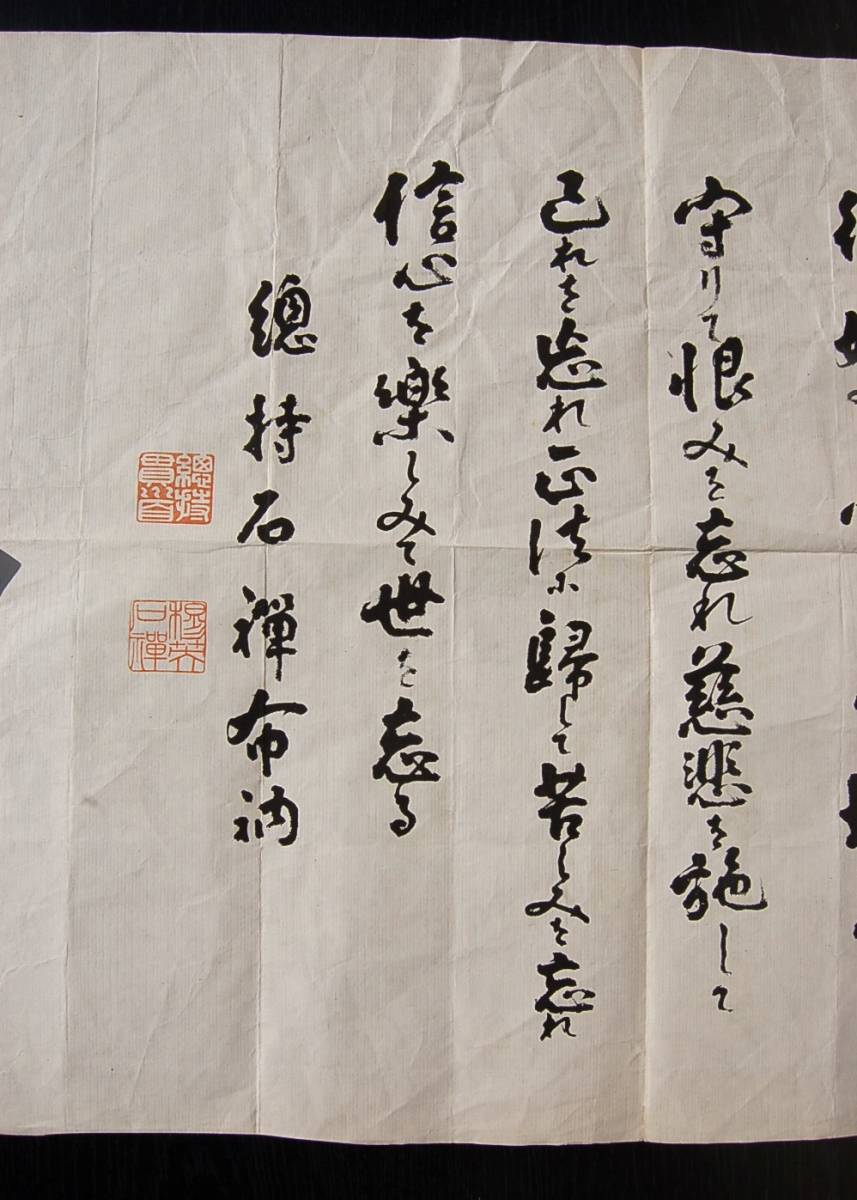 守りて恨みを忘れ慈悲を施して
己れを忘れ正法に歸して苦しみを忘れ
信心を樂しみて世を忘る
總持石禅布衲
總持貫首
穆英石禪